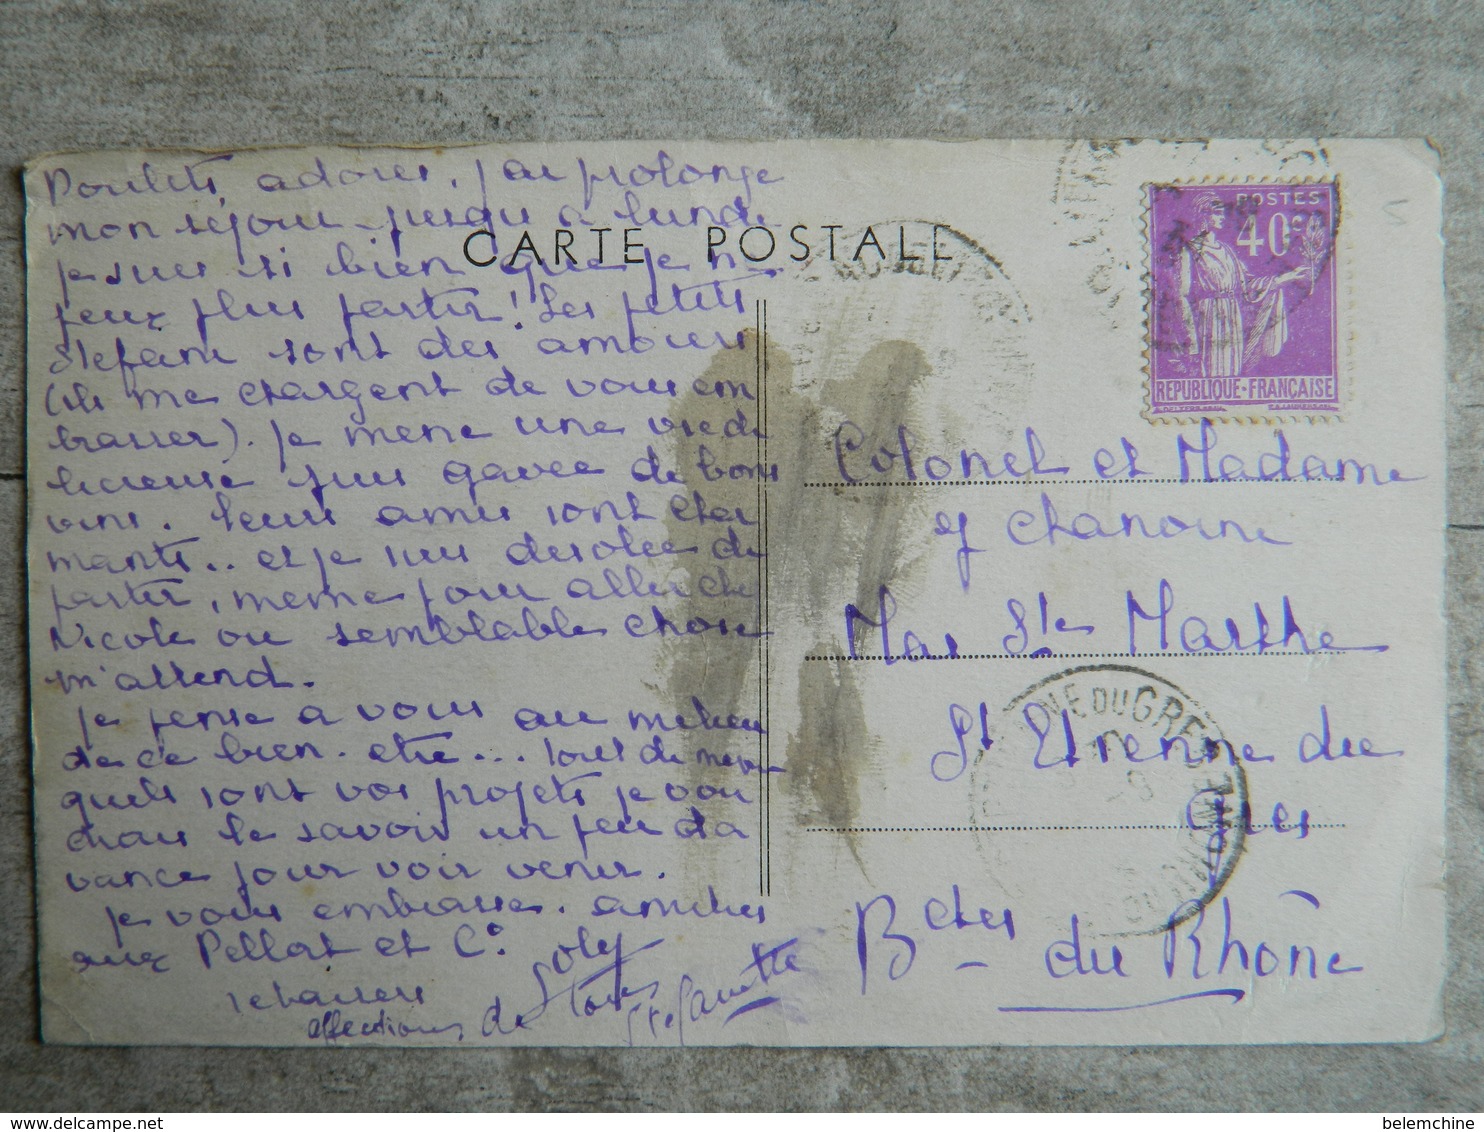 Poulets adorés, j'ai prolongé
mon séjour jusqu'à lundi
je suis si bien que je n
peux plus partir! Les petits
Stefani sont des amours
(ils me chargent de vous em
brasser). Je mène une vie dé
licieuse suis gavée de bons
vins. Leurs amis sont char
mants.. et je suis désolée de
partir, même pour aller chez
Nicole ou semblable chose
m'attend.
Je pense à vous au milieu
de ce bien-être... tout de même
quels sont vos projets je vou
drais le savoir un peu d'a
vance pour voir venir.
Je vous embrasse. amitiés
aux Pellat et Cº.
Soly
affections de tous
CARTE POSTALE
POSTES
40c
REPUBLIQUE-FRANÇAISE
Colonel et Madame
Chanoine
Mas Ste Marthe
St Etienne du
Grès
Bches du Rhône
ST ETIENNE DU GRES
belemchine